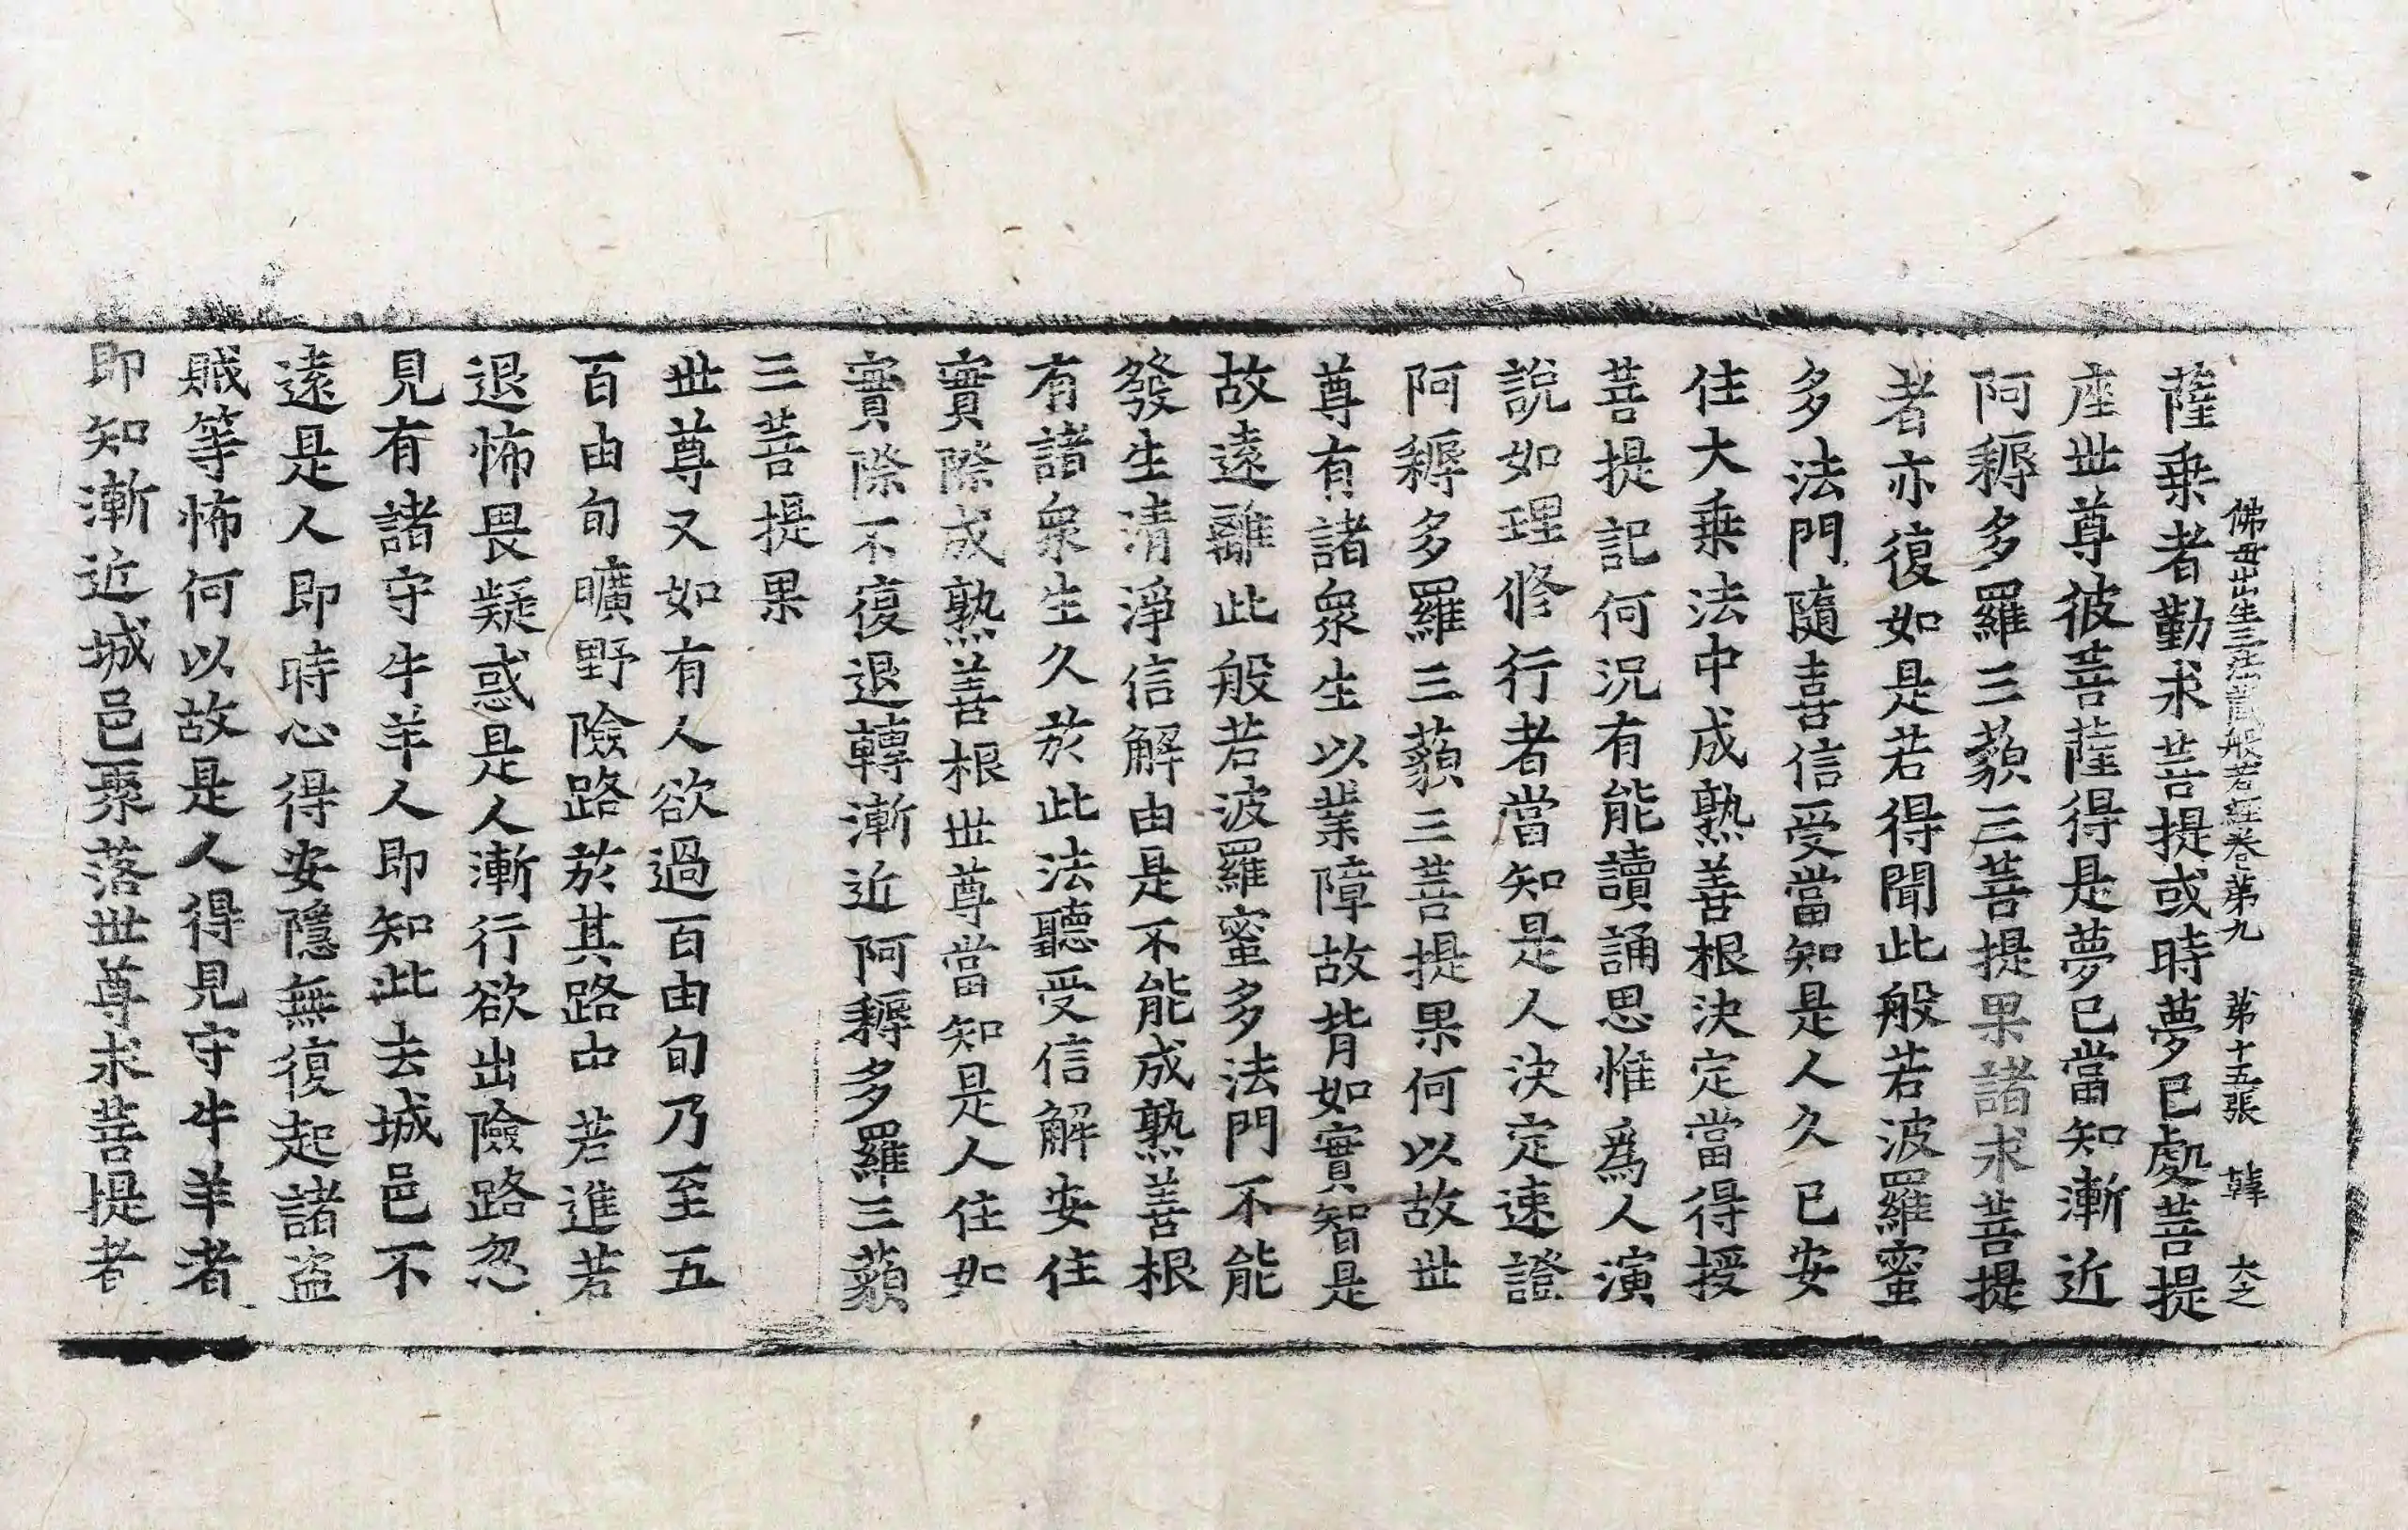 薩乗者勤求菩提或時夢已處菩提
佛母出生三法藏般若經卷第九 第十五張 韓 大之
座世尊彼菩薩得是夢已當知漸近
阿耨多羅三藐三菩提果諸求菩提
者亦復如是若得聞此般若波羅蜜
多法門隨喜信受當知是人久已安
住大乗法中成熟善根決定當得授
菩提記何況有能讀誦思惟爲人演
說如理修行者當知是人決定速證
阿耨多羅三藐三菩提果何以故世
尊有諸衆生以業障故背如實智是
故遠離此般若波羅蜜多法門不能
發生清淨信解由是不能成熟善根
有諸衆生久於此法聽受信解安住
實際成熟善根世尊當知是人住如
實際不復退轉漸近阿耨多羅三藐
三菩提果
世尊又如有人欲過百由旬乃至五
百由旬曠野險路於其路中若進若
退怖畏疑惑是人漸行欲出險路忽
見有諸守牛羊人即知此去城邑不
遠是人即時心得安隱無復起諸盜
賊等怖何以故是人得見守牛羊者
即知漸近城邑聚落世尊求菩提者